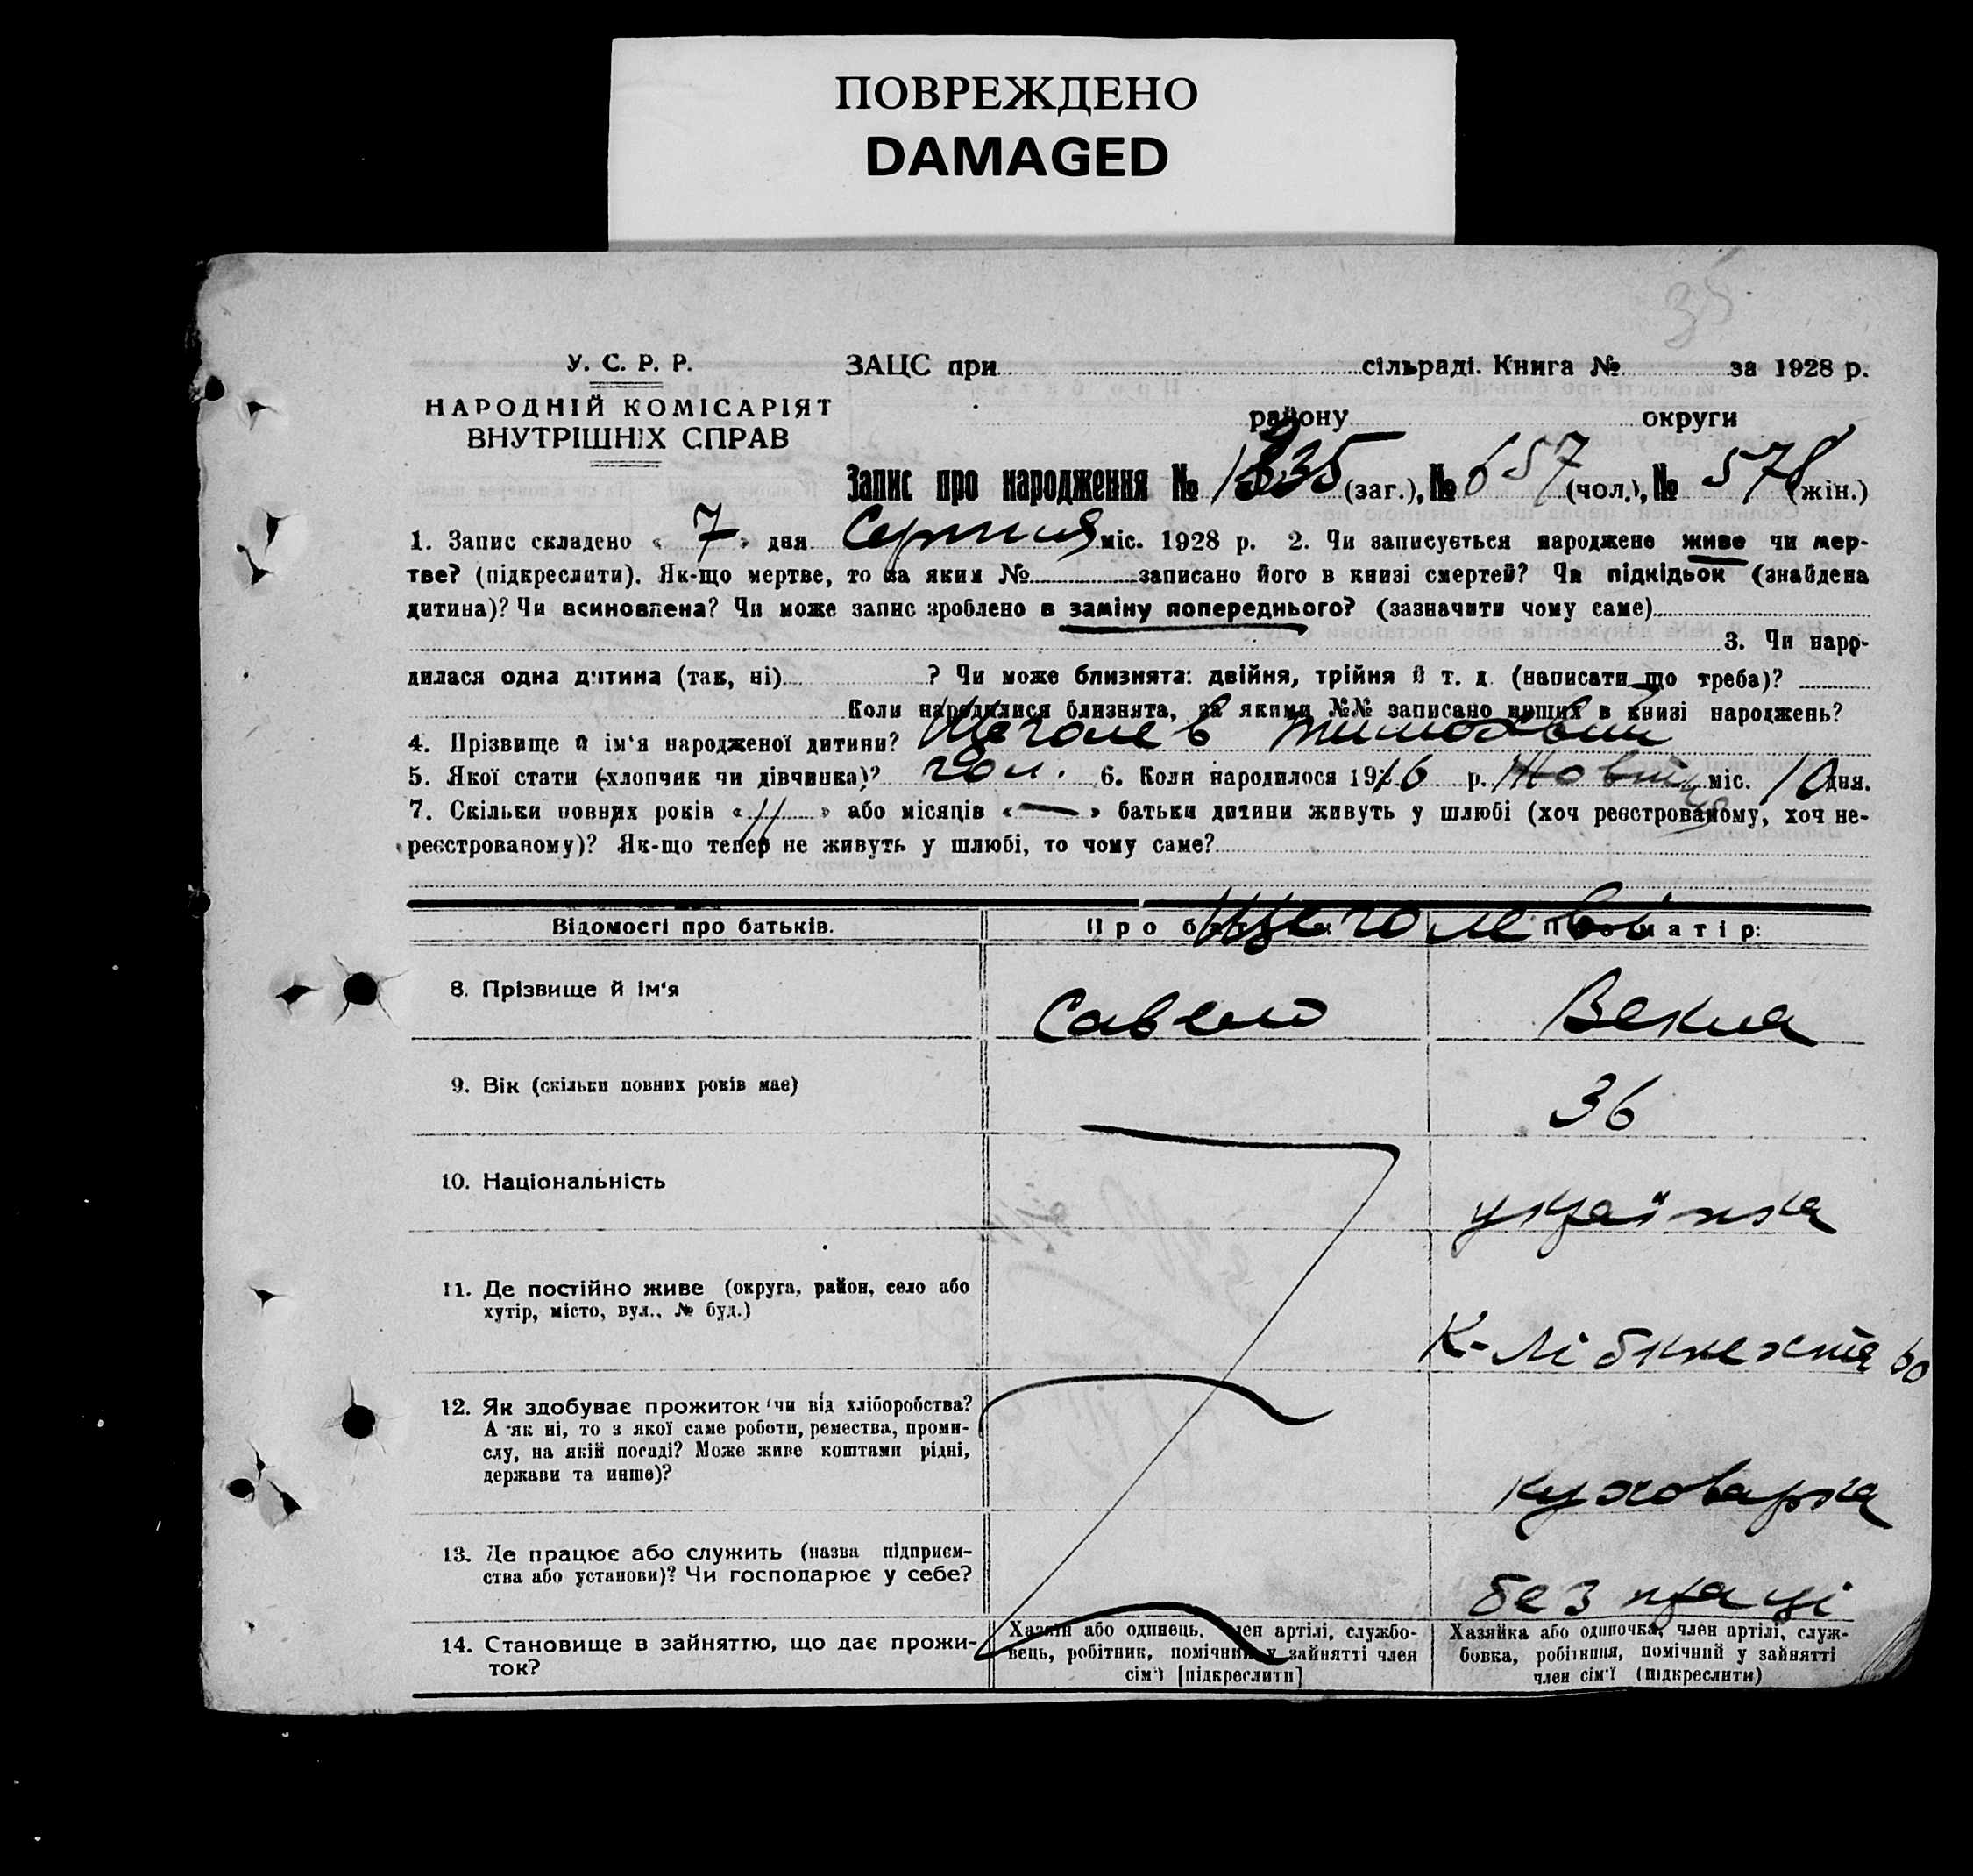 ПОВРЕЖДЕНО
DAMAGED
35
У. С. Р. Р.
НАРОДНІЙ КОМІСАРІЯТ
ВНУТРІШНІХ СПРАВ
ЗАЦС при сільраді. Книга № за 1928 р.
району округи
Запис про народження № 1335 (заг.), № 657 (чол.), № 578 (жін.)
1. Запис складено « 7 » дня Серпня міс. 1928 р. 2. Чи записується народжене живе чи мер-
тве? (підкреслити). Як-що мертве, то за яким № записано його в книзі смертей? Чи підкідьок (знайдена
дитина)? Чи всиновлена? Чи може запис зроблено в заміну попереднього? (зазначити чому саме)
3. Чи наро-
дилася одна дитина (так, ні) ? Чи може близнята: двійня, трійня й т. д. (написати що треба)?
Коли народилися близнята, за якими №№ записано инших в книзі народжень?
4. Прізвище й ім'я народженої дитини? Щеголев Тимофій
5. Якої стати (хлопчик чи дівчинка)? чол. 6. Коли народилося 1916 р. Жовтня міс. 10 дня.
7. Скільки повних років « 11 » або місяців « — » батьки дитини живуть у шлюбі (хоч реєстрованому, хоч не-
реєстрованому)? Як-що тепер не живуть у шлюбі, то чому саме?
Відомості про батьків. Про батька: Про матір:
Щеголеві
8. Прізвище й ім'я Савелій Векла
9. Вік (скільки повних років має) 36
10. Національність українка
11. Де постійно живе (округа, район, село або
хутір, місто, вул., № буд.)
К-Лібкнехта 60
12. Як здобуває прожиток чи від хліборобства?
А як ні, то з якої саме роботи, ремества, проми-
слу, на якій посаді? Може живе коштами рідні,
держави та инше)?
куховарка
13. Де працює або служить (назва підприєм-
ства або установи)? Чи господарює у себе?
без праці
14. Становище в зайняттю, що дає прожи-
ток?
Хазяїн або одинець, член артілі, службо-
вець, робітник, помічний у зайнятті член
сім'ї [підкреслити]
Хазяйка або одиночка, член артілі, служ-
бовка, робітниця, помічний у зайнятті
член сім'ї (підкреслити)